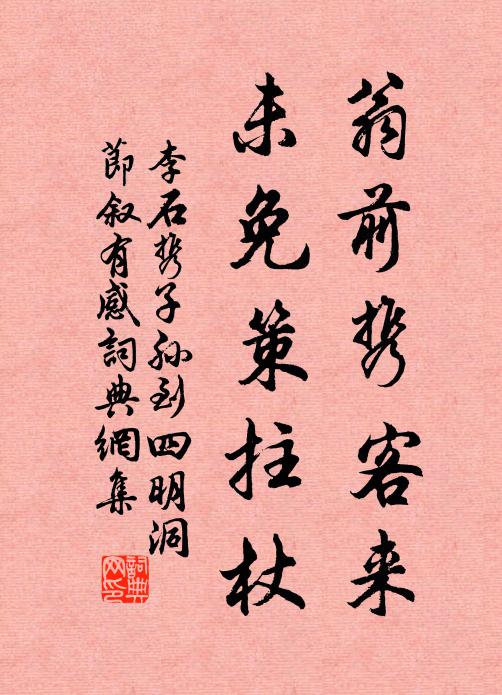 翁前携客来
未免策拄杖
李石携子孙到四明洞
節叙有感詞典網集
詞典網印